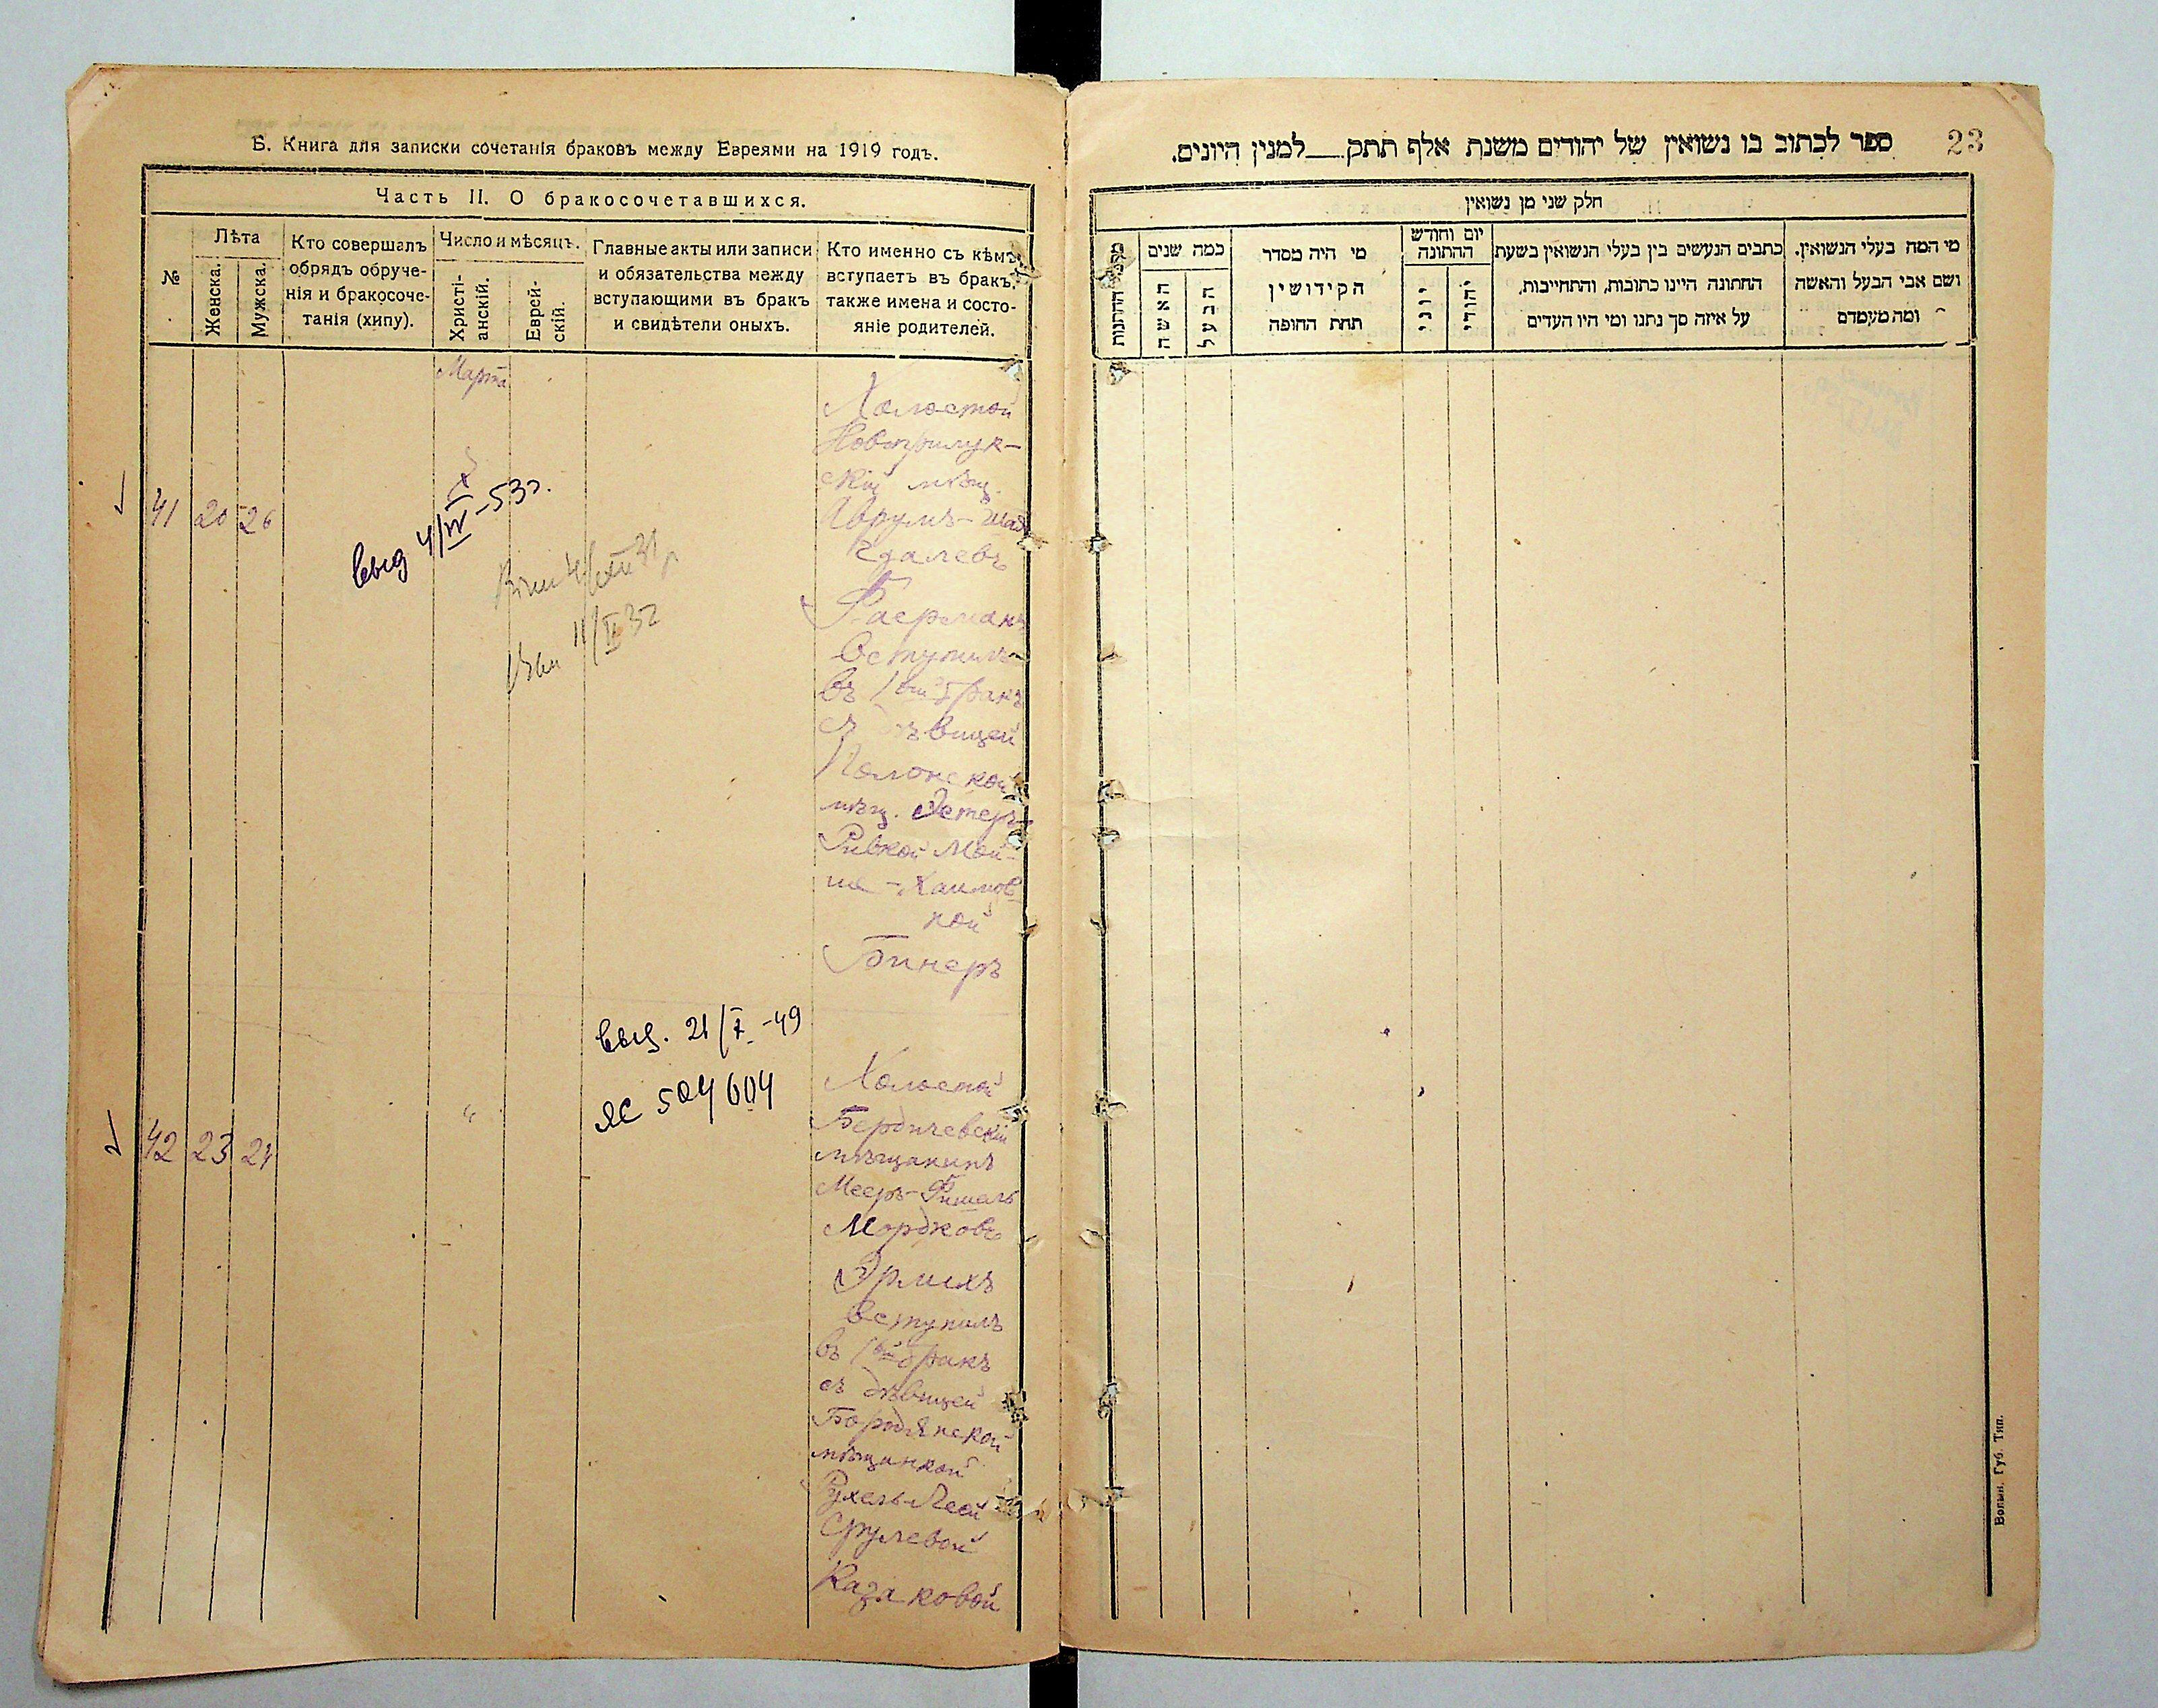 Б. Книга для записки сочетанія браковъ между Евреями на 1919 годъ.
Часть II. О бракосочетавшихся.
№
Лѣта
Женска.
Мужска.
Кто совершалъ
обрядъ обруче-
нія и бракосоче-
танія (хипу).
Число и мѣсяцъ.
Христі-
анскій.
Еврей-
скій.
Главные акты или записи
и обязательства между
вступающими въ бракъ
и свидѣтели оныхъ.
Кто именно съ кѣмъ
вступаетъ въ бракъ,
также имена и состо-
яніе родителей.
Марта
41 20 26
выд 4/IV-53г.
11/II 32
Холостой
Новоприлук-
скій мѣщ.
Аврумъ-
Едалевъ
Фаерманъ
вступилъ
въ 1вый бракъ
съ дѣвицей
Полонской
мѣщ. Эстеръ
Ривкой Мой-
ше-Хаимов
ной
Бинеръ
выд. 21/X-49
ЯС 504604
42 23 24
"
Холостой
Бердичевскій
мѣщанинъ
Мееръ-Фишель
Мордковъ
Эрлихъ
вступилъ
въ 1вый бракъ
съ дѣвицей
Бородянской
мѣщанкой
Рухель-Леей
Срулевой
Казаковой
23
ספר לכתוב בו נשואין של יהודים משנת אלף תתק__למנין היונים.
חלק שני מן נשואין
מי המה בעלי הנשואין.
ושם אבי הבעל והאשה
ומה מעמדם
כתבים הנעשים בין בעלי הנשואין בשעת
החתונה היינו כתובות, והתחייבות,
על איזה סך נתנו ומי היו העדים
יום וחודש
החתונה
יהודי
יוני
מי היה מסדר
הקידושין
תחת החופה
כמה שנים
הבעל
האשה
החתונות
Волын. Губ. Тип.